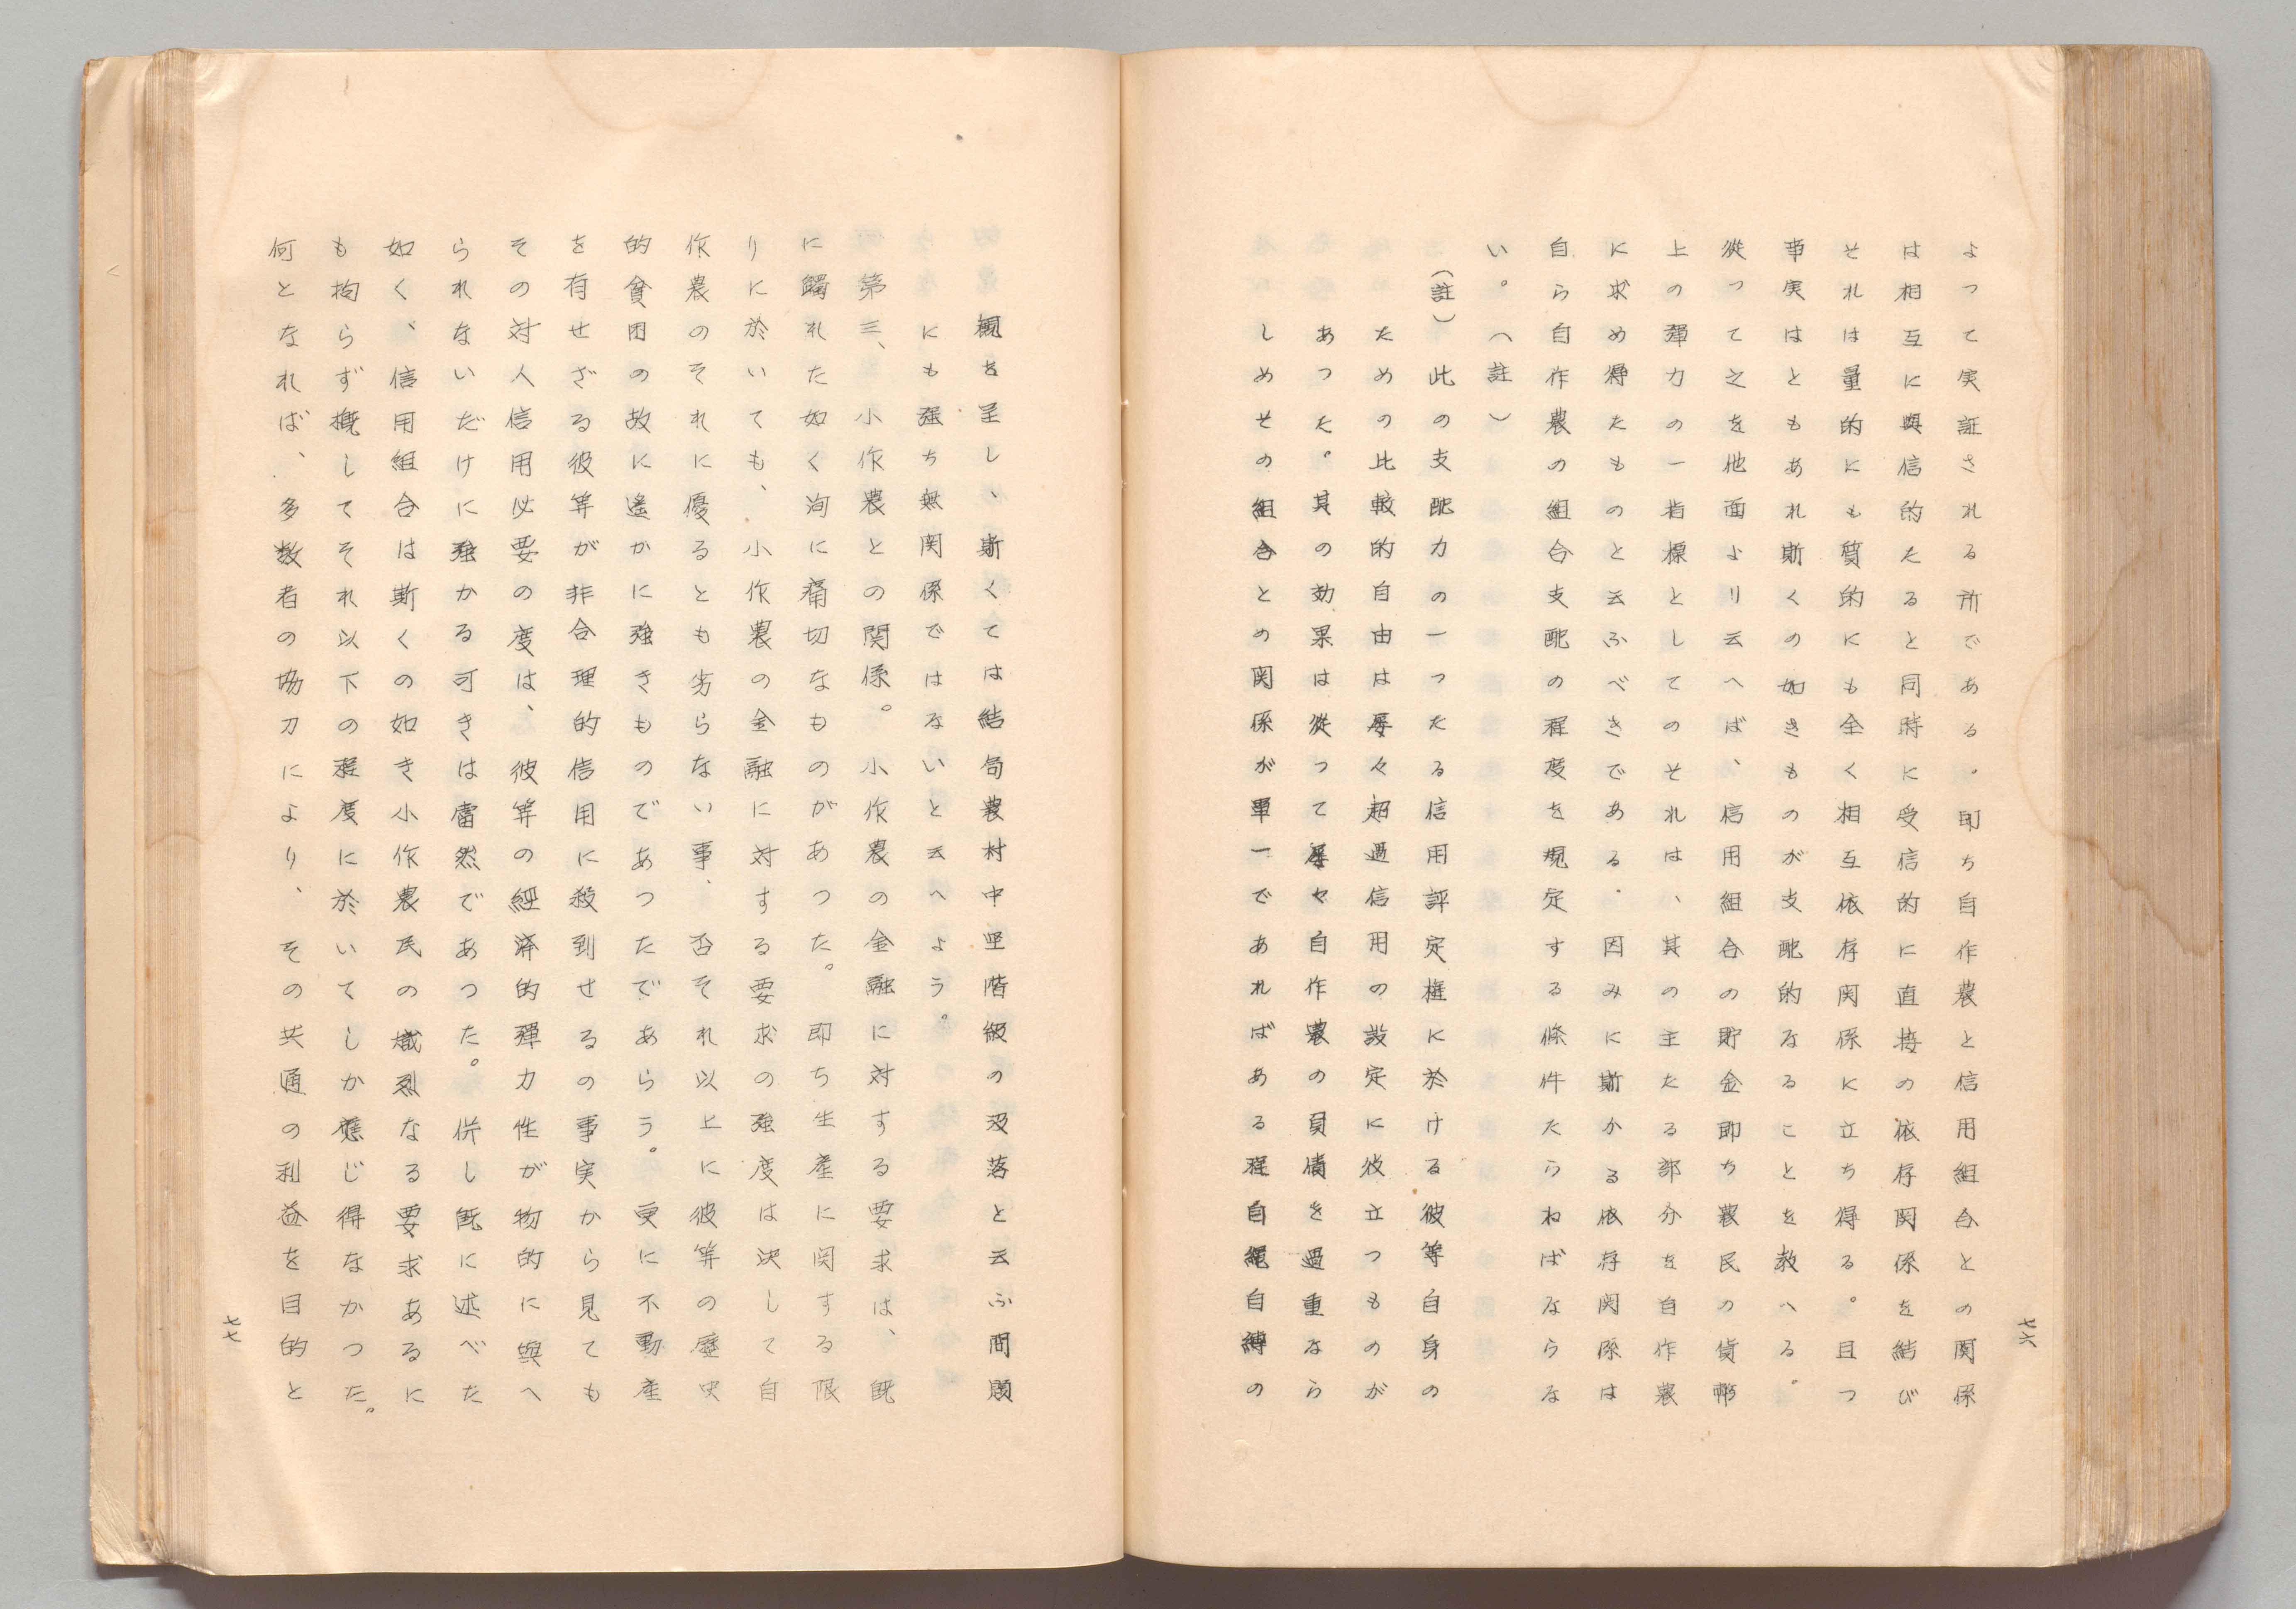 よって実証される所である。即ち自作農と信用組合との関係
は相互に與信的たると同時に受信的に直接の依存関係を結び
それは量的にも質的にも全く相互依存関係に立ち得る。且つ
事実はともあれ斯くの如きものが支配的なることを教へる。
從って之を他面より云へば、信用組合の貯金即ち農民の貨幣
上の弾力の一指標としてのそれは、其の主たる部分を自作農
に求め得たものと云ふべきである。因みに斯かる依存関係は
自ら自作農の組合支配の程度を規定する條件たらねばならな
い。(註)
(註) 此の支配力の一つたる信用評定権に於ける彼等自身の
ための比較的自由は屡々超過信用の設定に役立つものが
あつた。其の効果は從つて屡々自作農の負債を過重なら
しめその組合との関係が單一であればある程自繩自縛の
七六
観を呈し、斯くては結局農村中堅階級の没落と云ふ問題
にも強ち無関係ではないと云へよう。
第三、小作農との関係。小作農の金融に対する要求は、既
に觸れた如く洵に痛切なものがあつた。即ち生産に関する限
りに於いても、小作農の金融に対する要求の強度は決して自
作農のそれに優るとも劣らない事、否それ以上に彼等の歴史
的貧困の故に遙かに強きものであつたであらう。更に不動産
を有せざる彼等が非合理的信用に殺到せるの事実から見ても
その対人信用必要の度は、彼等の経済的弾力性が物的に與へ
られないだけに強かる可きは當然であつた。併し既に述べた
如く、信用組合は斯くの如き小作農民の熾烈なる要求あるに
も拘らず概してそれ以下の程度に於いてしか應じ得なかつた。
何となれば、多数者の協力により、その共通の利益を目的と
七七